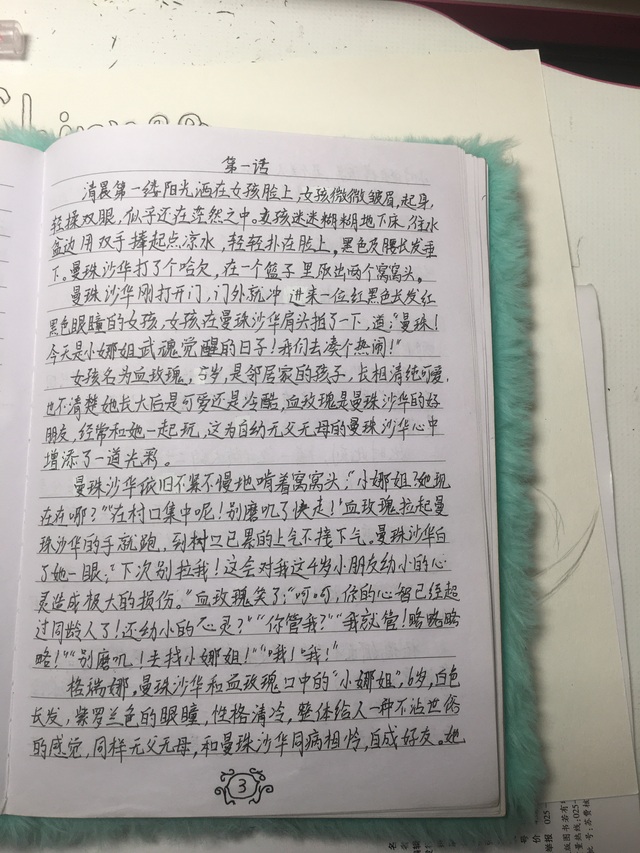 第一话
清晨第一缕阳光洒在女孩脸上,女孩微微皱眉,起身,
轻揉双眼,似乎还在茫然之中。女孩迷迷糊糊地下床,往水
盆边用双手捧起点凉水,轻轻扑在脸上,黑色及腰长发垂
下。曼珠沙华打了个哈欠,在一个篮子里取出两个窝窝头。
曼珠沙华刚打开门,门外就冲进来一位红黑色长发红
黑色眼瞳的女孩,女孩在曼珠沙华肩头拍了一下,道:“曼珠!
今天是小娜姐武魂觉醒的日子!我们去凑个热闹!”
女孩名为血玫瑰,5岁,是邻居家的孩子,长相清纯可爱,
也不清楚她长大后是可爱还是冷酷,血玫瑰是曼珠沙华的好
朋友,经常和她一起玩,这为自幼无父无母的曼珠沙华心中
增添了一道光彩。
曼珠沙华依旧不紧不慢地啃着窝窝头:“小娜姐?她现
在在哪?”“在村口集中呢!别磨叽了快走!”血玫瑰拉起曼
珠沙华的手就跑,到树口已累的上气不接下气。曼珠沙华白
了她一眼:“下次别拉我!这会对我这4岁小朋友幼小的心
灵造成极大的损伤。”血玫瑰笑了:“呵呵,你的心智已经超
过同龄人了!还幼小的心灵?”“你管我?”“我就管!略略略
略!”“别磨叽!去找小娜姐!”“哦!哦!”
格瑞娜,曼珠沙华和血玫瑰口中的“小娜姐”,6岁,白色
长发,紫罗兰色的眼瞳,性格清冷,整体给人一种不沾世俗
的感觉,同样无父无母,和曼珠沙华同病相怜,自成好友。她
3